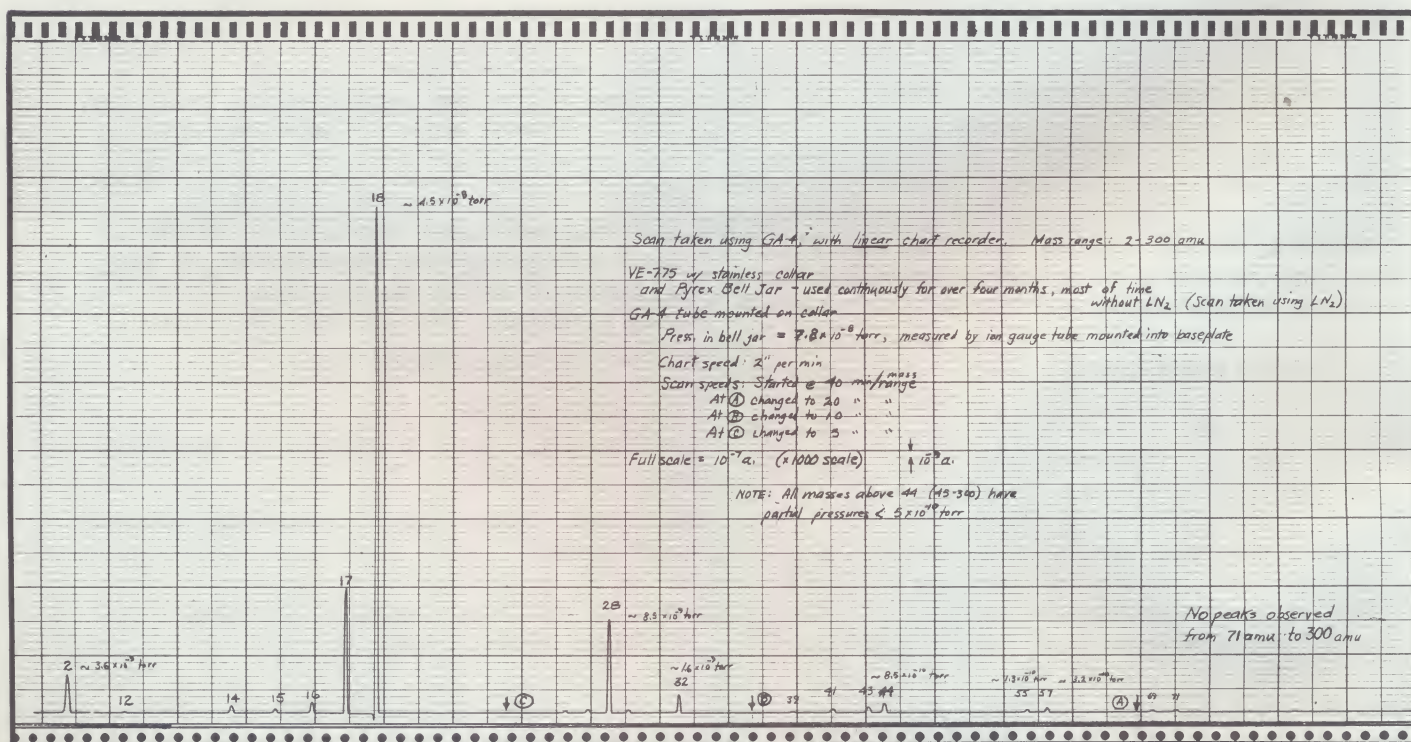 18 ~ 4.5 x 10⁻⁸ torr
Scan taken using GA-4, with linear chart recorder. Mass range: 2-300 amu
VE-775 w/ stainless collar
and Pyrex Bell Jar - used continuously for over four months, most of time
without LN₂ (Scan taken using LN₂)
GA-4 tube mounted on collar
Press. in bell jar = 7.8 x 10⁻⁸ torr, measured by ion gauge tube mounted into baseplate
Chart speed: 2" per min
Scan speeds: Started @ 40 min/mass range
At Ⓐ changed to 20 " "
At Ⓑ changed to 10 " "
At Ⓒ changed to 5 " "
Full scale = 10⁻⁷ a. (x1000 scale) 10⁻⁹ a.
NOTE: All masses above 44 (45-300) have
partial pressures < 5 x 10⁻¹⁰ torr
17
28 ~ 8.5 x 10⁻⁹ torr
No peaks observed
from 71 amu to 300 amu
2 ~ 3.6 x 10⁻⁹ torr
~ 1.6 x 10⁻⁹ torr
~ 8.5 x 10⁻¹⁰ torr
~ 1.3 x 10⁻¹⁰ torr ~ 3.2 x 10⁻¹⁰ torr
12 14 15 16 Ⓒ 32 Ⓑ 39 41 43 44 55 57 Ⓐ 69 71